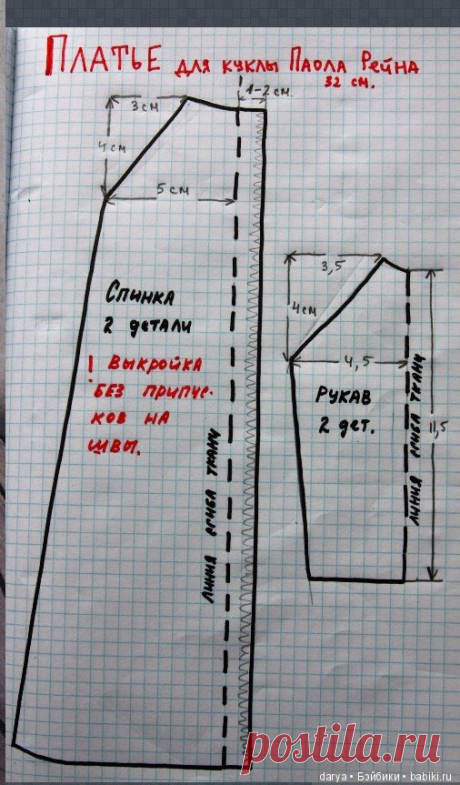 ПЛАТЬЕ для куклы Паола Рейна
32 см.
1-2 см.
3 см
4 см
5 см
Спинка
2 детали
! Выкройка
без припус-
ков на
швы.
линия сгиба ткани
3,5
4 см
4,5
Рукав
2 дет.
линия сгиба ткани
11,5
postila.ru
darya • Бэйбики • babiki.ru